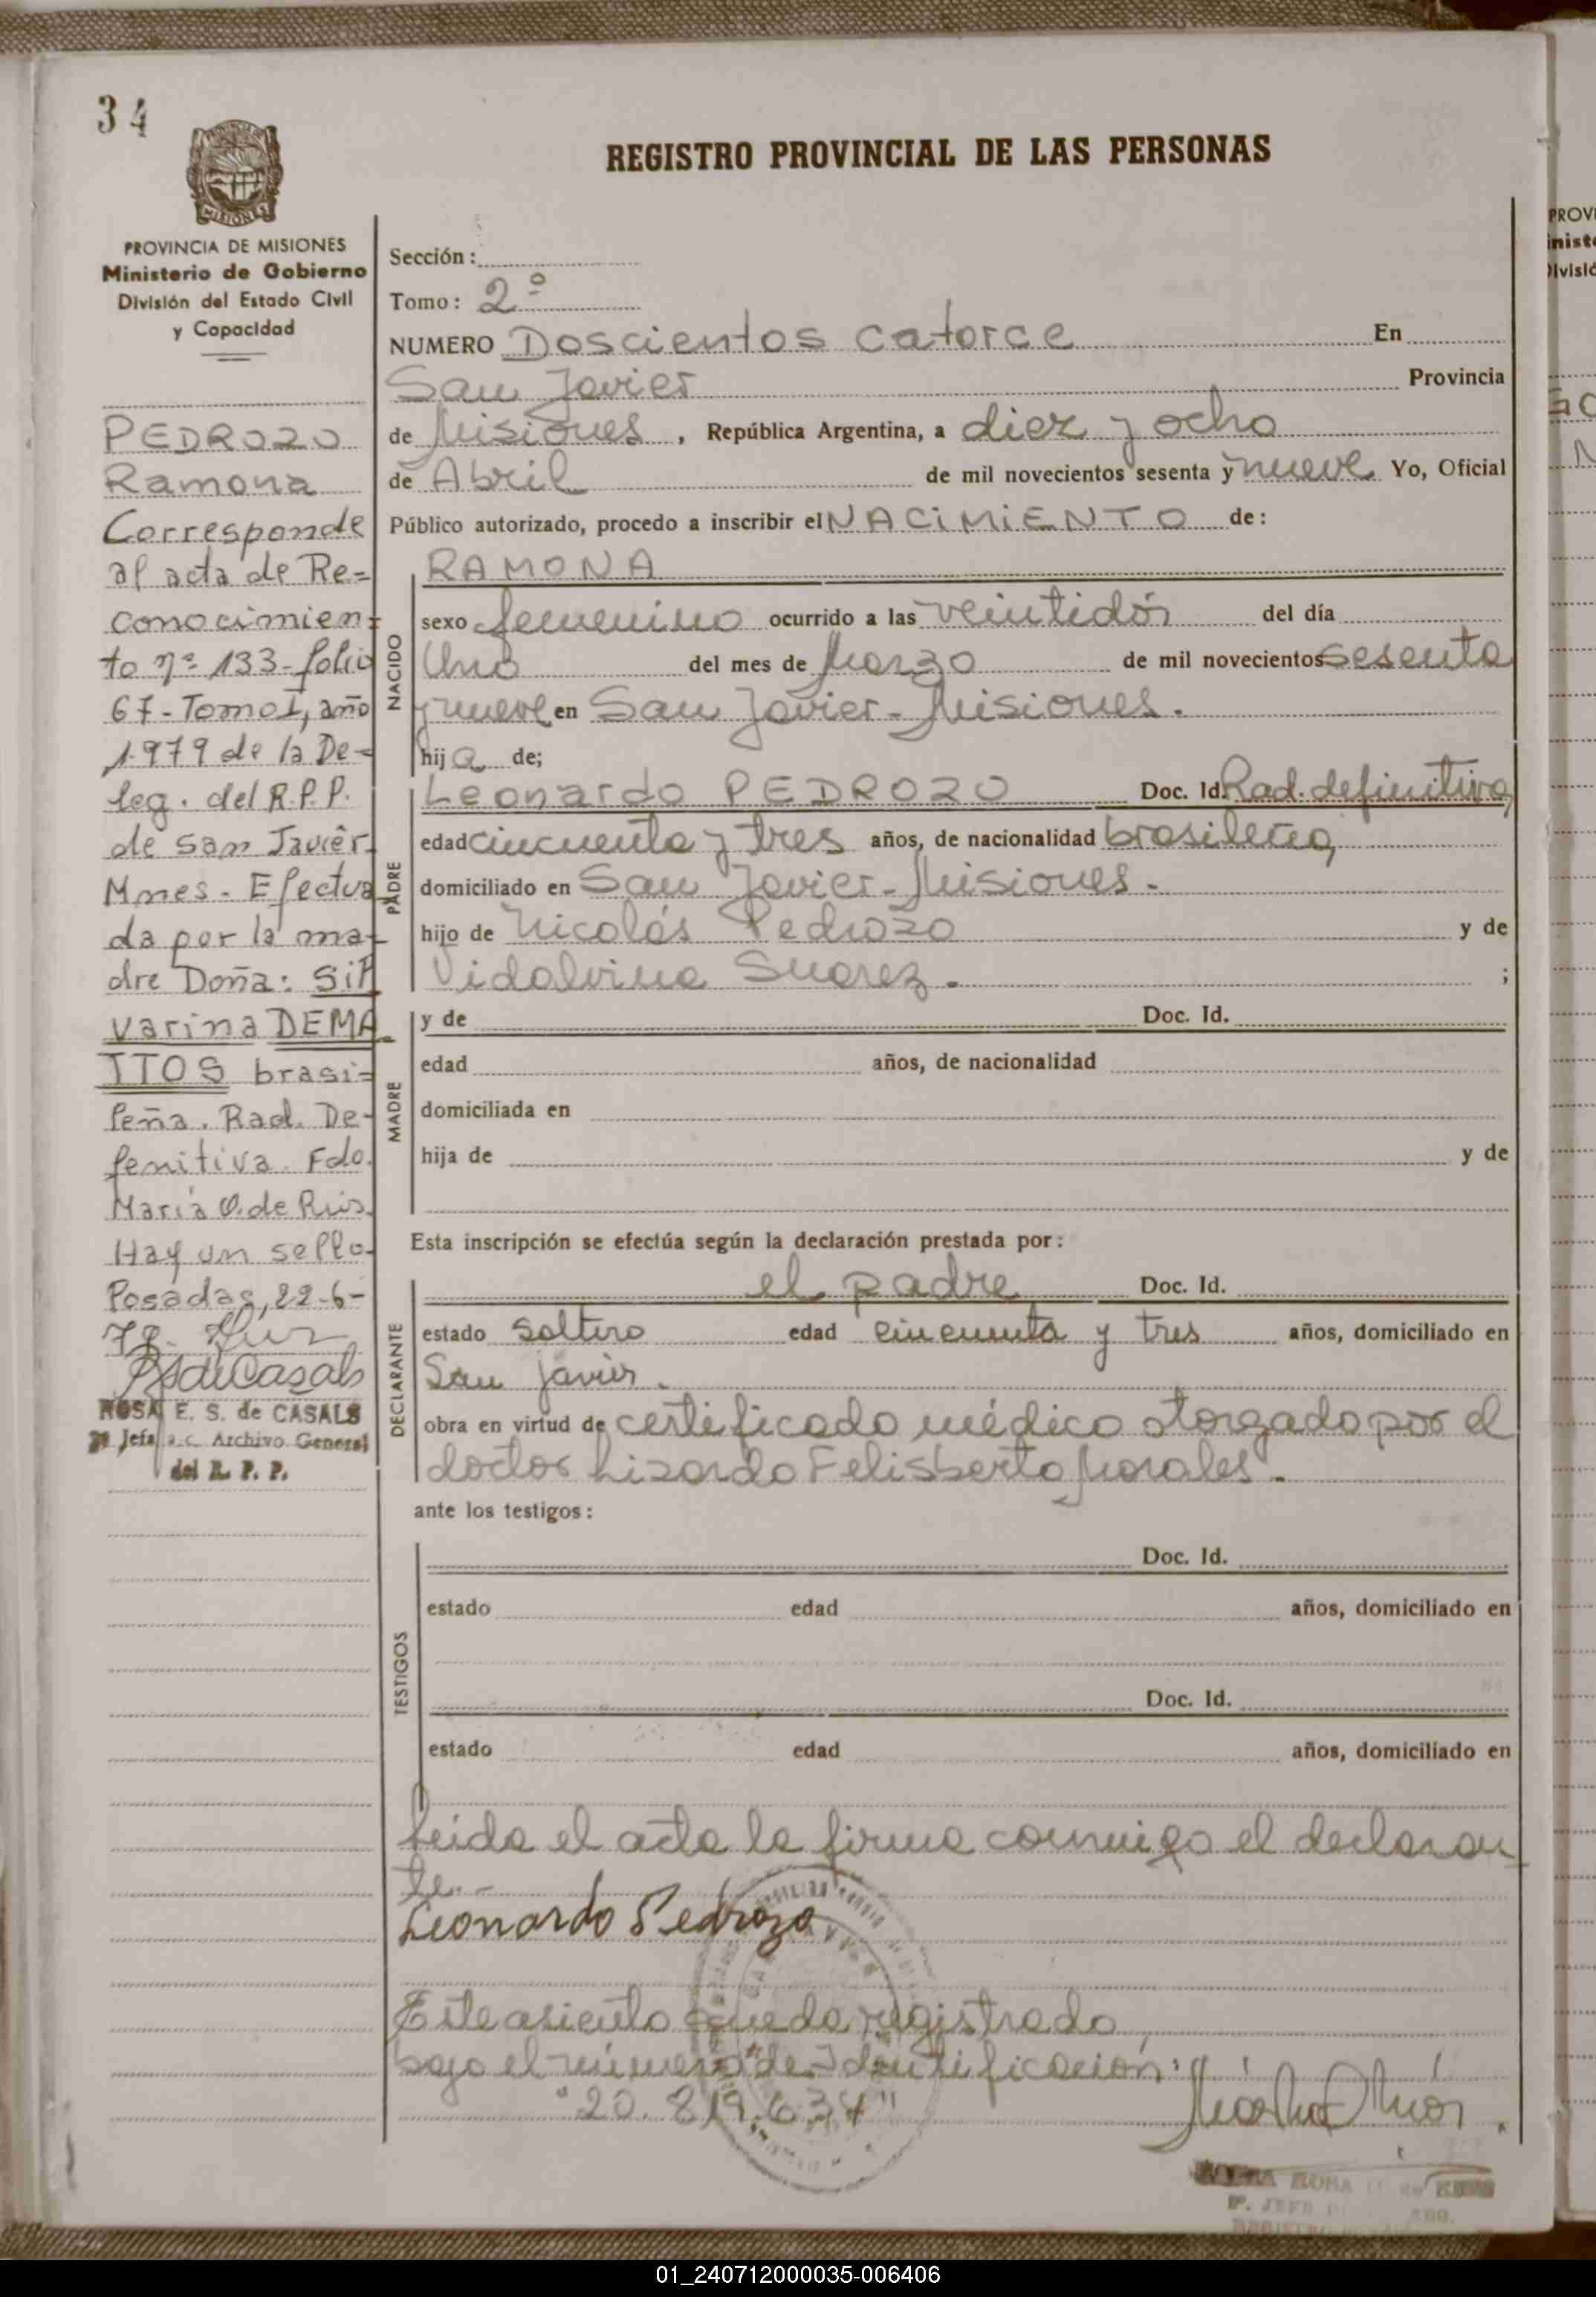 34
MISIONES
PROVINCIA DE MISIONES
Ministerio de Gobierno
División del Estado Civil
y Capacidad
PEDROZO
Ramona
Corresponde
al acta de Re=
conocimien=
to nº 133-folio
67-Tomo I, año
1979 de la De=
leg. del R.P.P.
de San Javier
Mnes - Efectua
da por la ma-
dre Doña: Sil
varina DEMA
TTOS brasi=
leña. Rad. De-
fenitiva. Fdo.
María O. de Rios.
Hay un sello.
Posadas, 22-6-
79.
ROSA E. S. de CASALS
Jefa a.c. Archivo General
del R. P. P.
REGISTRO PROVINCIAL DE LAS PERSONAS
Sección:
Tomo: 2º
NUMERO Doscientos catorce En
San Javier Provincia
de Misiones, República Argentina, a diez y ocho
de Abril de mil novecientos sesenta y nueve Yo, Oficial
Público autorizado, procedo a inscribir el NACIMIENTO de:
NACIDO
RAMONA
sexo femenino ocurrido a las veintidós del día
Uno del mes de Marzo de mil novecientos sesenta
y nueve en San Javier - Misiones.
hija de;
PADRE
Leonardo PEDROZO Doc. Id. Rad. definitiva,
edad cincuenta y tres años, de nacionalidad brasileña,
domiciliado en San Javier - Misiones -
hijo de Nicolás Pedrozo y de
Vidalvina Suarez. ;
MADRE
y de Doc. Id.
edad años, de nacionalidad
domiciliada en
hija de y de
Esta inscripción se efectúa según la declaración prestada por:
DECLARANTE
el padre Doc. Id.
estado soltero edad cincuenta y tres años, domiciliado en
San Javier.
obra en virtud de certificado médico otorgado por el
doctor Lizardo Felisberto Morales.
ante los testigos:
TESTIGOS
Doc. Id.
estado edad años, domiciliado en
Doc. Id.
estado edad años, domiciliado en
Leida el acta la firma conmigo el declaran
te.-
Leonardo Pedrozo
Este asiento queda registrado
bajo el número de Identificación:
"20.819.634"
PROVI
iniste
ivisió
01_240712000035-006406